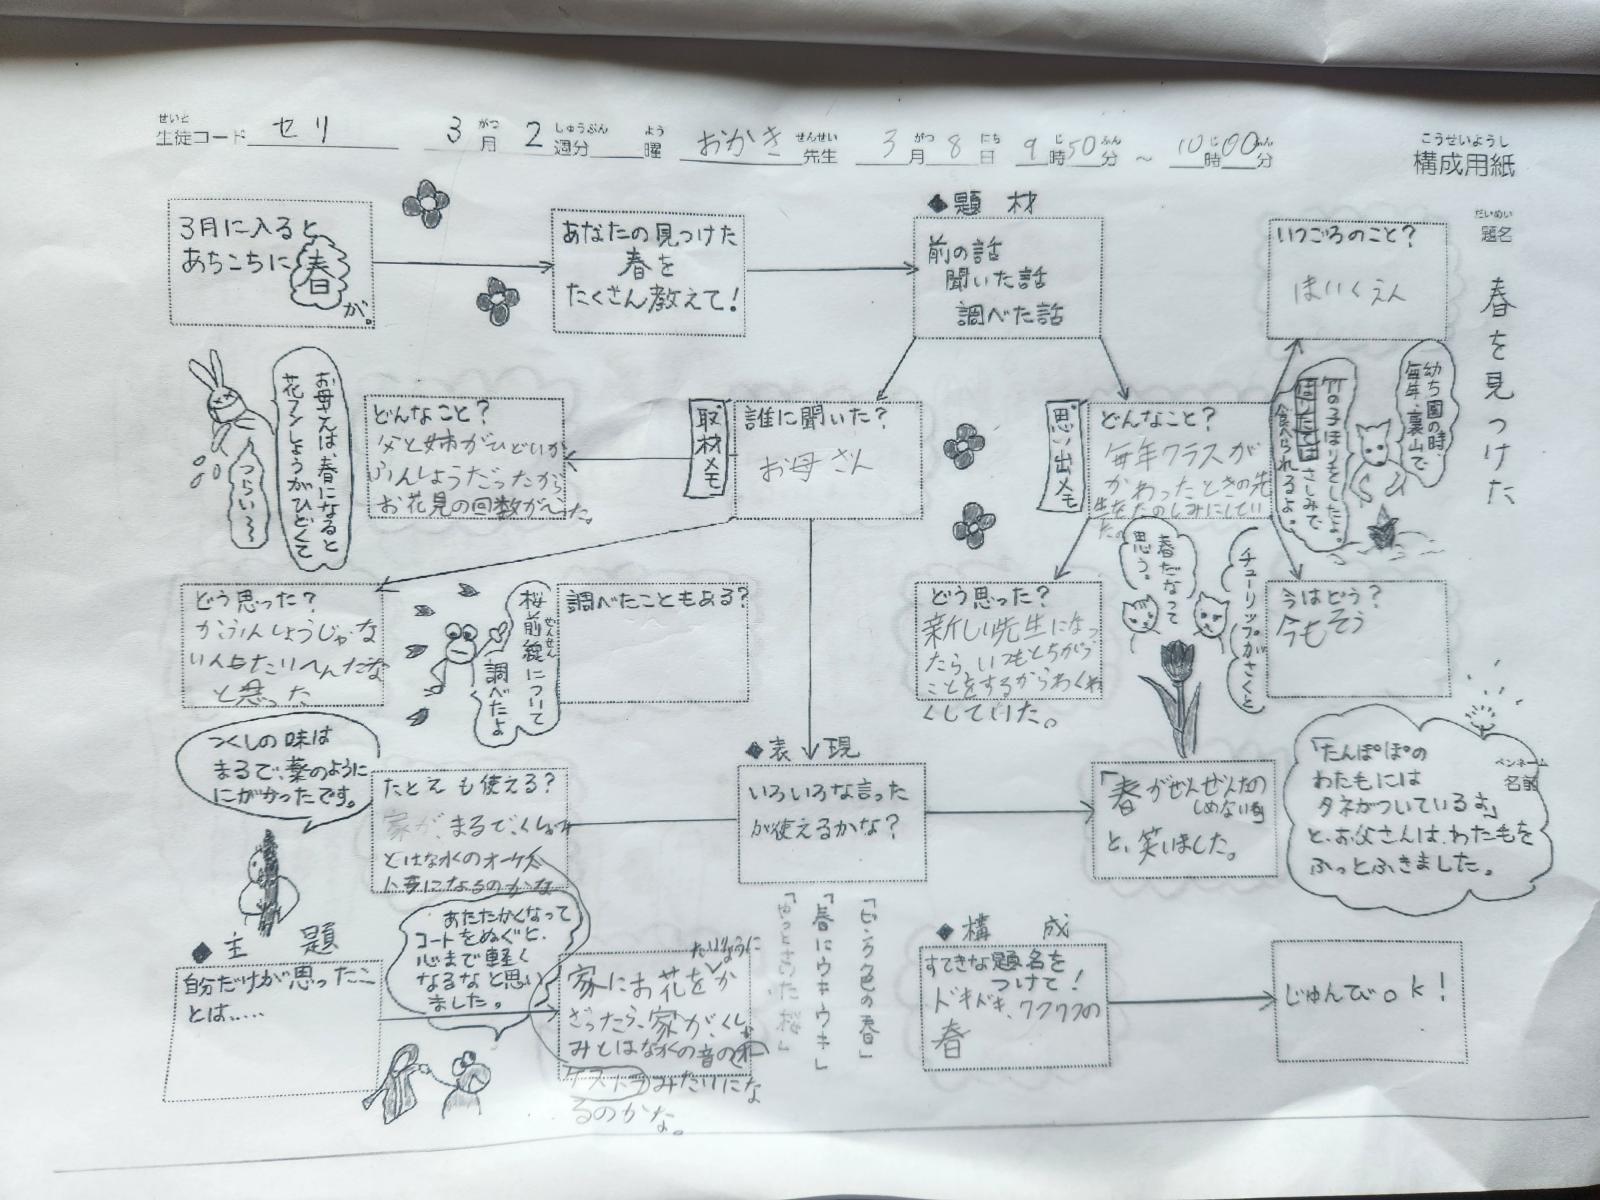 せいと
生徒コード セリ 3月 2週分 曜 おかき先生 3月8日 9時50分～10時00分
がつ しゅうぶん よう せんせい がつ にち じ ふん じ ふん
こうせいようし
構成用紙
だいめい
題名
春を見つけた
3月に入ると
あちこちに春
が。
あなたの見つけた
春を
たくさん教えて!
◆題材
前の話
聞いた話
調べた話
いつごろのこと?
ほいくえん
幼ち園の時、
毎年、裏山で
竹の子ほりをしたよ。
さしみで
食べられるよ。
思い出メモ
どんなこと?
毎年クラスが
かわったときの先
生をたのしみにしてい
た。
誰に聞いた?
お母さん
取材メモ
どんなこと?
父と姉がひどいか
ふんしょうだったから
お花見の回数がへった。
お母さんは、春になると
花フンしょうがひどくて
つらい〜
どう思った?
かふんしょうじゃな
い人もたいへんだな
と思った
桜前線について
ぜんせん
調べたよ
調べたこともある?
どう思った?
新しい先生になっ
たら、いつもとちがう
ことをするからわくわ
くしていた。
春だなって
思う。
チューリップがさくと
今はどう?
今もそう
つくしの味は
まるで、薬のように
にがかったです。
たとえも使える?
家が、まるで、くしゃみ
とはな水のオーケス
になるのかな
◆表現
いろいろな言った
が使えるかな?
「春がぜんぜんたの
しめないね」
と、笑いました。
「たんぽぽの
わたもにには
タネがついているよ」
と、お父さんは、わたもを
ふっとふきました。
ペンネーム
名前
「ピンク色の春」
「春にウキウキ」
◆主題
自分だけが思ったこ
とは……
あたたかくなって
コートをぬぐと、
心まで軽く
なるなと思い
ました。
家にお花をか
ざったら、家が、くしゃ
みとはな水の音のオー
ケストラみたいにな
るのかな。
◆構成
すてきな題名を
つけて!
ドキドキ、ワクワクの
春
じゅんびok!